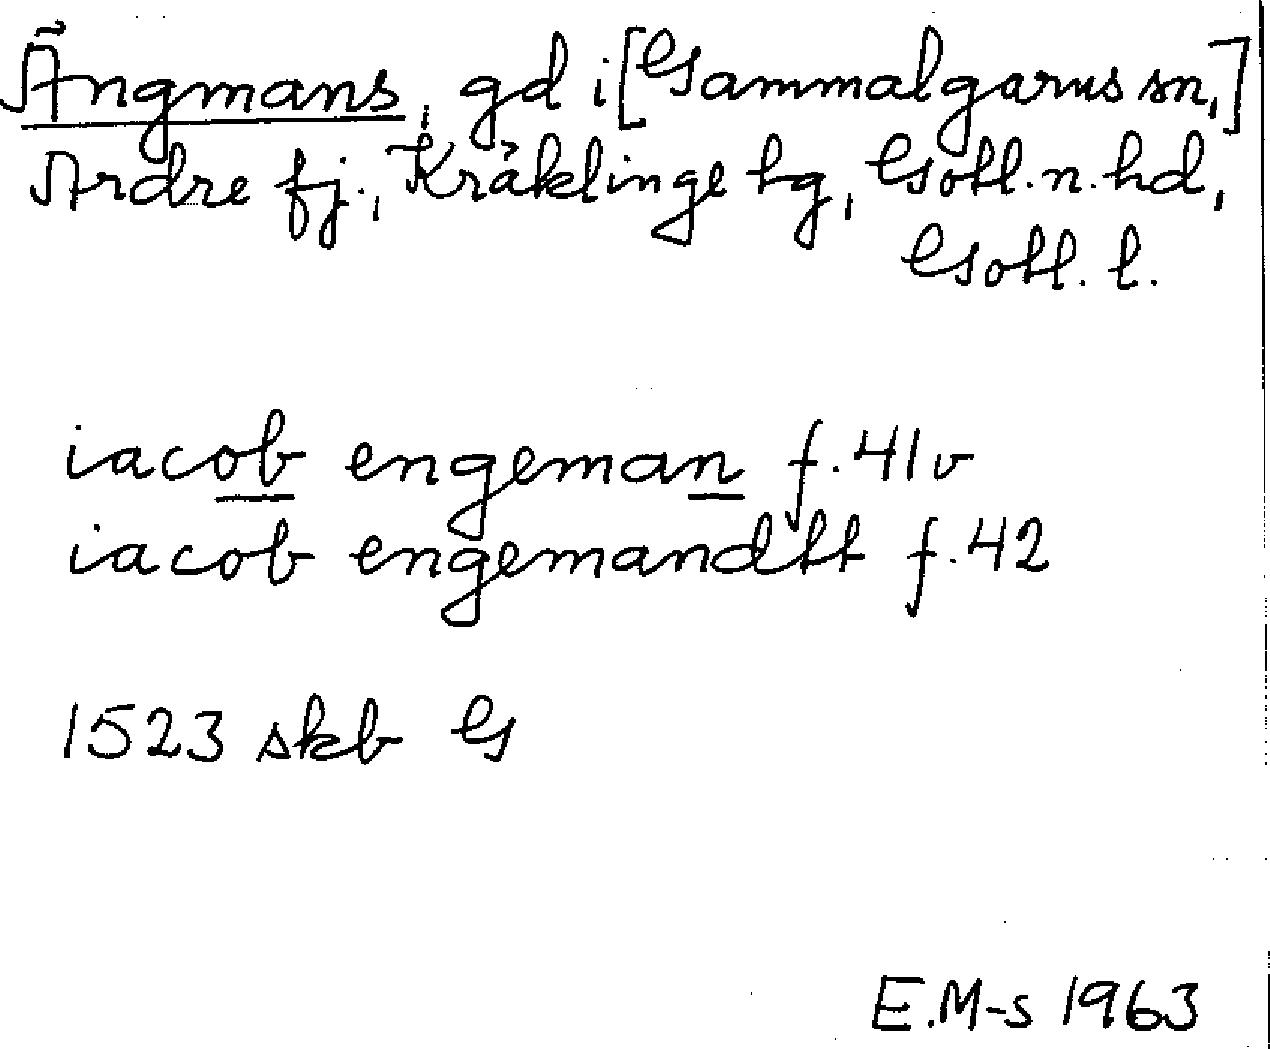 Ängmans, gd i [Gammalgarns sn,]
Ardre fj., Kräklinge tg, Gotl. n. hd,
Gotl. l.
iacob engeman f. 41 v
iacob engemandtt f. 42
1523 skb G
E.M-s 1963